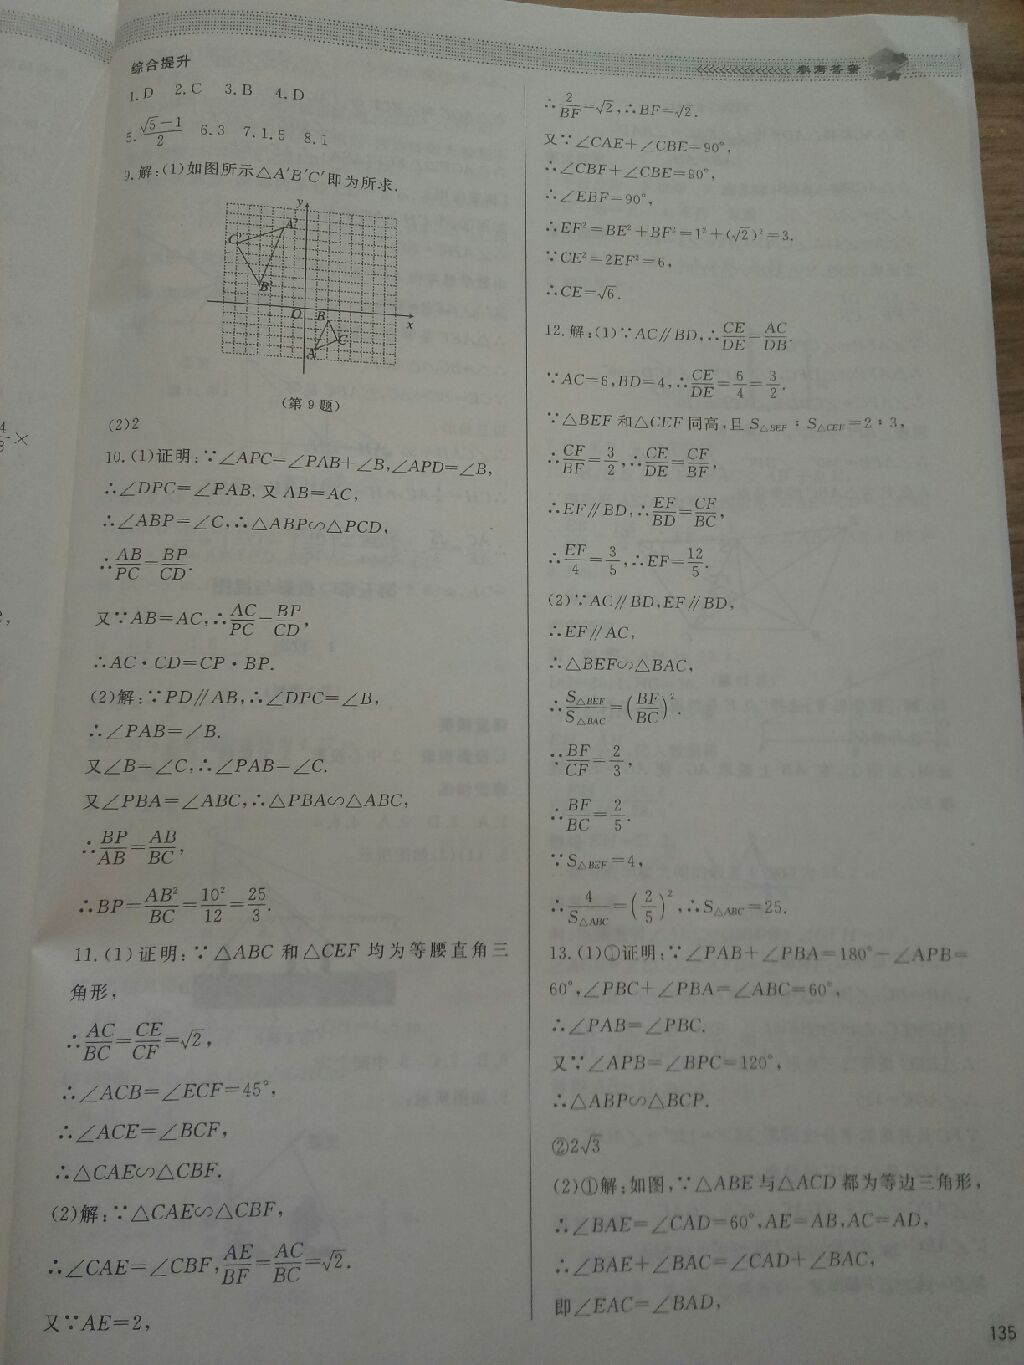 参考答案
综合提升
1.D 2.C 3.B 4.D
5.(√5−1)/2 6.3 7.1.5 8.1
9.解:(1)如图所示△A'B'C'即为所求.
y
A'
C'
B'
O B x
C
A
(第9题)
(2)2
10.(1)证明:∵∠APC=∠PAB+∠B,∠APD=∠B,
∴∠DPC=∠PAB,又AB=AC,
∴∠ABP=∠C,∴△ABP∽△PCD,
∴AB/PC=BP/CD.
又∵AB=AC,∴AC/PC=BP/CD,
∴AC·CD=CP·BP.
(2)解:∵PD∥AB,∴∠DPC=∠B,
∴∠PAB=∠B.
又∠B=∠C,∴∠PAB=∠C.
又∠PBA=∠ABC,∴△PBA∽△ABC,
∴BP/AB=AB/BC,
∴BP=AB²/BC=10²/12=25/3.
11.(1)证明:∵△ABC和△CEF均为等腰直角三
角形,
∴AC/BC=CE/CF=√2,
∴∠ACB=∠ECF=45°,
∴∠ACE=∠BCF,
∴△CAE∽△CBF.
(2)解:∵△CAE∽△CBF,
∴∠CAE=∠CBF,AE/BF=AC/BC=√2.
又∵AE=2,
∴2/BF=√2,∴BF=√2.
又∵∠CAE+∠CBE=90°,
∴∠CBF+∠CBE=90°,
∴∠EBF=90°,
∴EF²=BE²+BF²=1²+(√2)²=3.
∵CE²=2EF²=6,
∴CE=√6.
12.解:(1)∵AC∥BD,∴CE/DE=AC/DB.
∵AC=6,BD=4,∴CE/DE=6/4=3/2.
∵△BEF和△CEF同高,且S△BEF∶S△CEF=2∶3,
∴CF/BF=3/2,∴CE/DE=CF/BF,
∴EF∥BD,∴EF/BD=CF/BC,
∴EF/4=3/5,∴EF=12/5.
(2)∵AC∥BD,EF∥BD,
∴EF∥AC,
∴△BEF∽△BAC,
∴S△BEF/S△BAC=(BF/BC)².
∵BF/CF=2/3,
∴BF/BC=2/5.
∵S△BEF=4,
∴4/S△ABC=(2/5)²,∴S△ABC=25.
13.(1)①证明:∵∠PAB+∠PBA=180°−∠APB=
60°,∠PBC+∠PBA=∠ABC=60°,
∴∠PAB=∠PBC.
又∵∠APB=∠BPC=120°,
∴△ABP∽△BCP.
②2√3
(2)①解:如图,∵△ABE与△ACD都为等边三角形,
∴∠BAE=∠CAD=60°,AE=AB,AC=AD,
∴∠BAE+∠BAC=∠CAD+∠BAC,
即∠EAC=∠BAD,
135